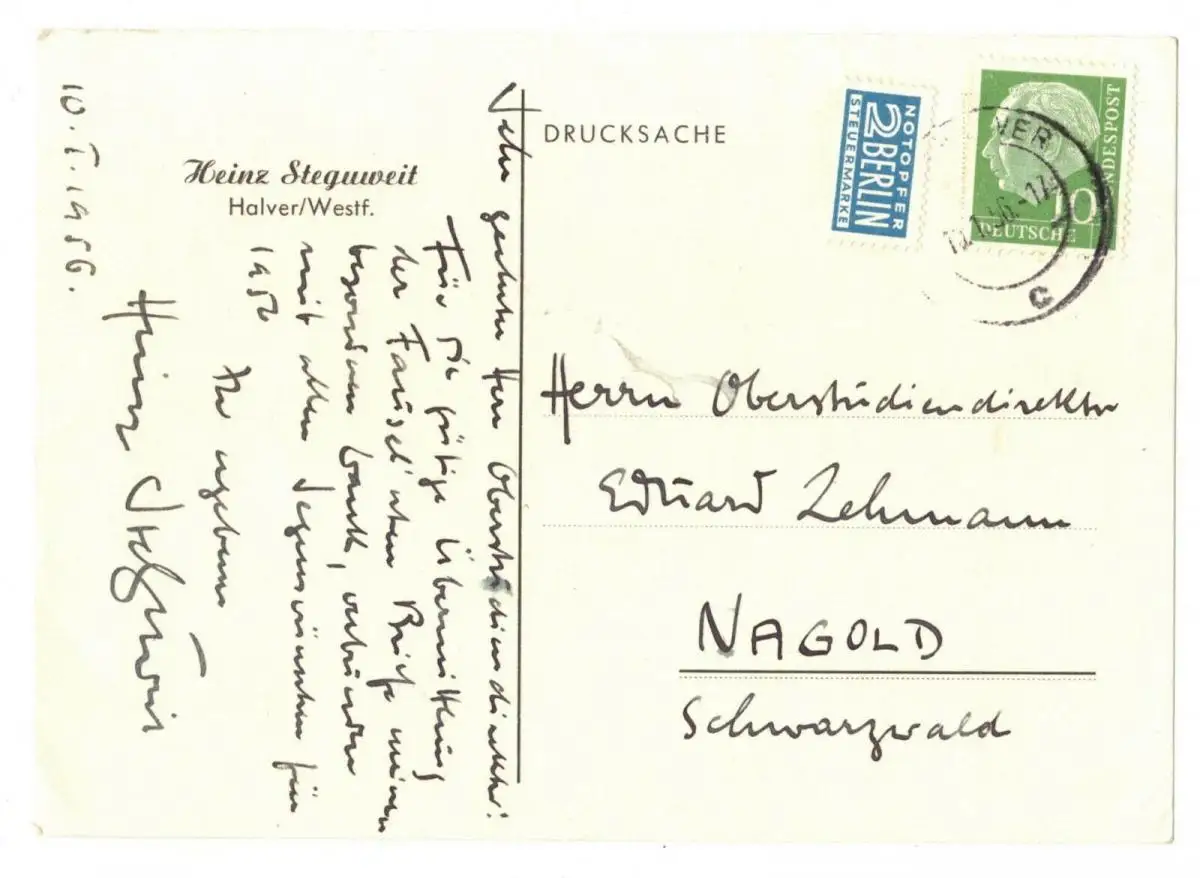 10.I.1956.
Heinz Steguweit
Halver/Westf.
Sehr geehrter Herr Oberstudiendirektor!
Für die gütige Übermittlung
der Fausel'schen Briefe meinen
besonderen Dank, verbunden
mit allen Segenswünschen für
1956
Ihr ergebener
Heinz Steguweit
DRUCKSACHE
NOTOPFER
2 BERLIN
STEUERMARKE
DEUTSCHE
BUNDESPOST
10
C
Herrn Oberstudiendirektor
Eduard Lehmann
NAGOLD
Schwarzwald